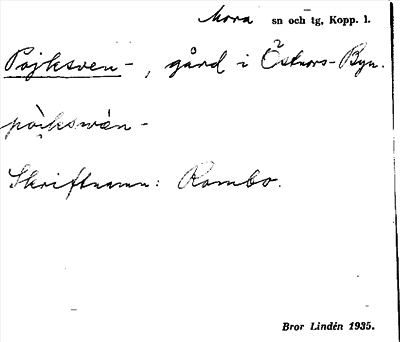 Mora sn och tg, Kopp. l.
Pojksven-, gård i Östnors-Byn.
pòi̯kswèn-
Skriftnamn: Rombo.
Bror Lindén 1935.